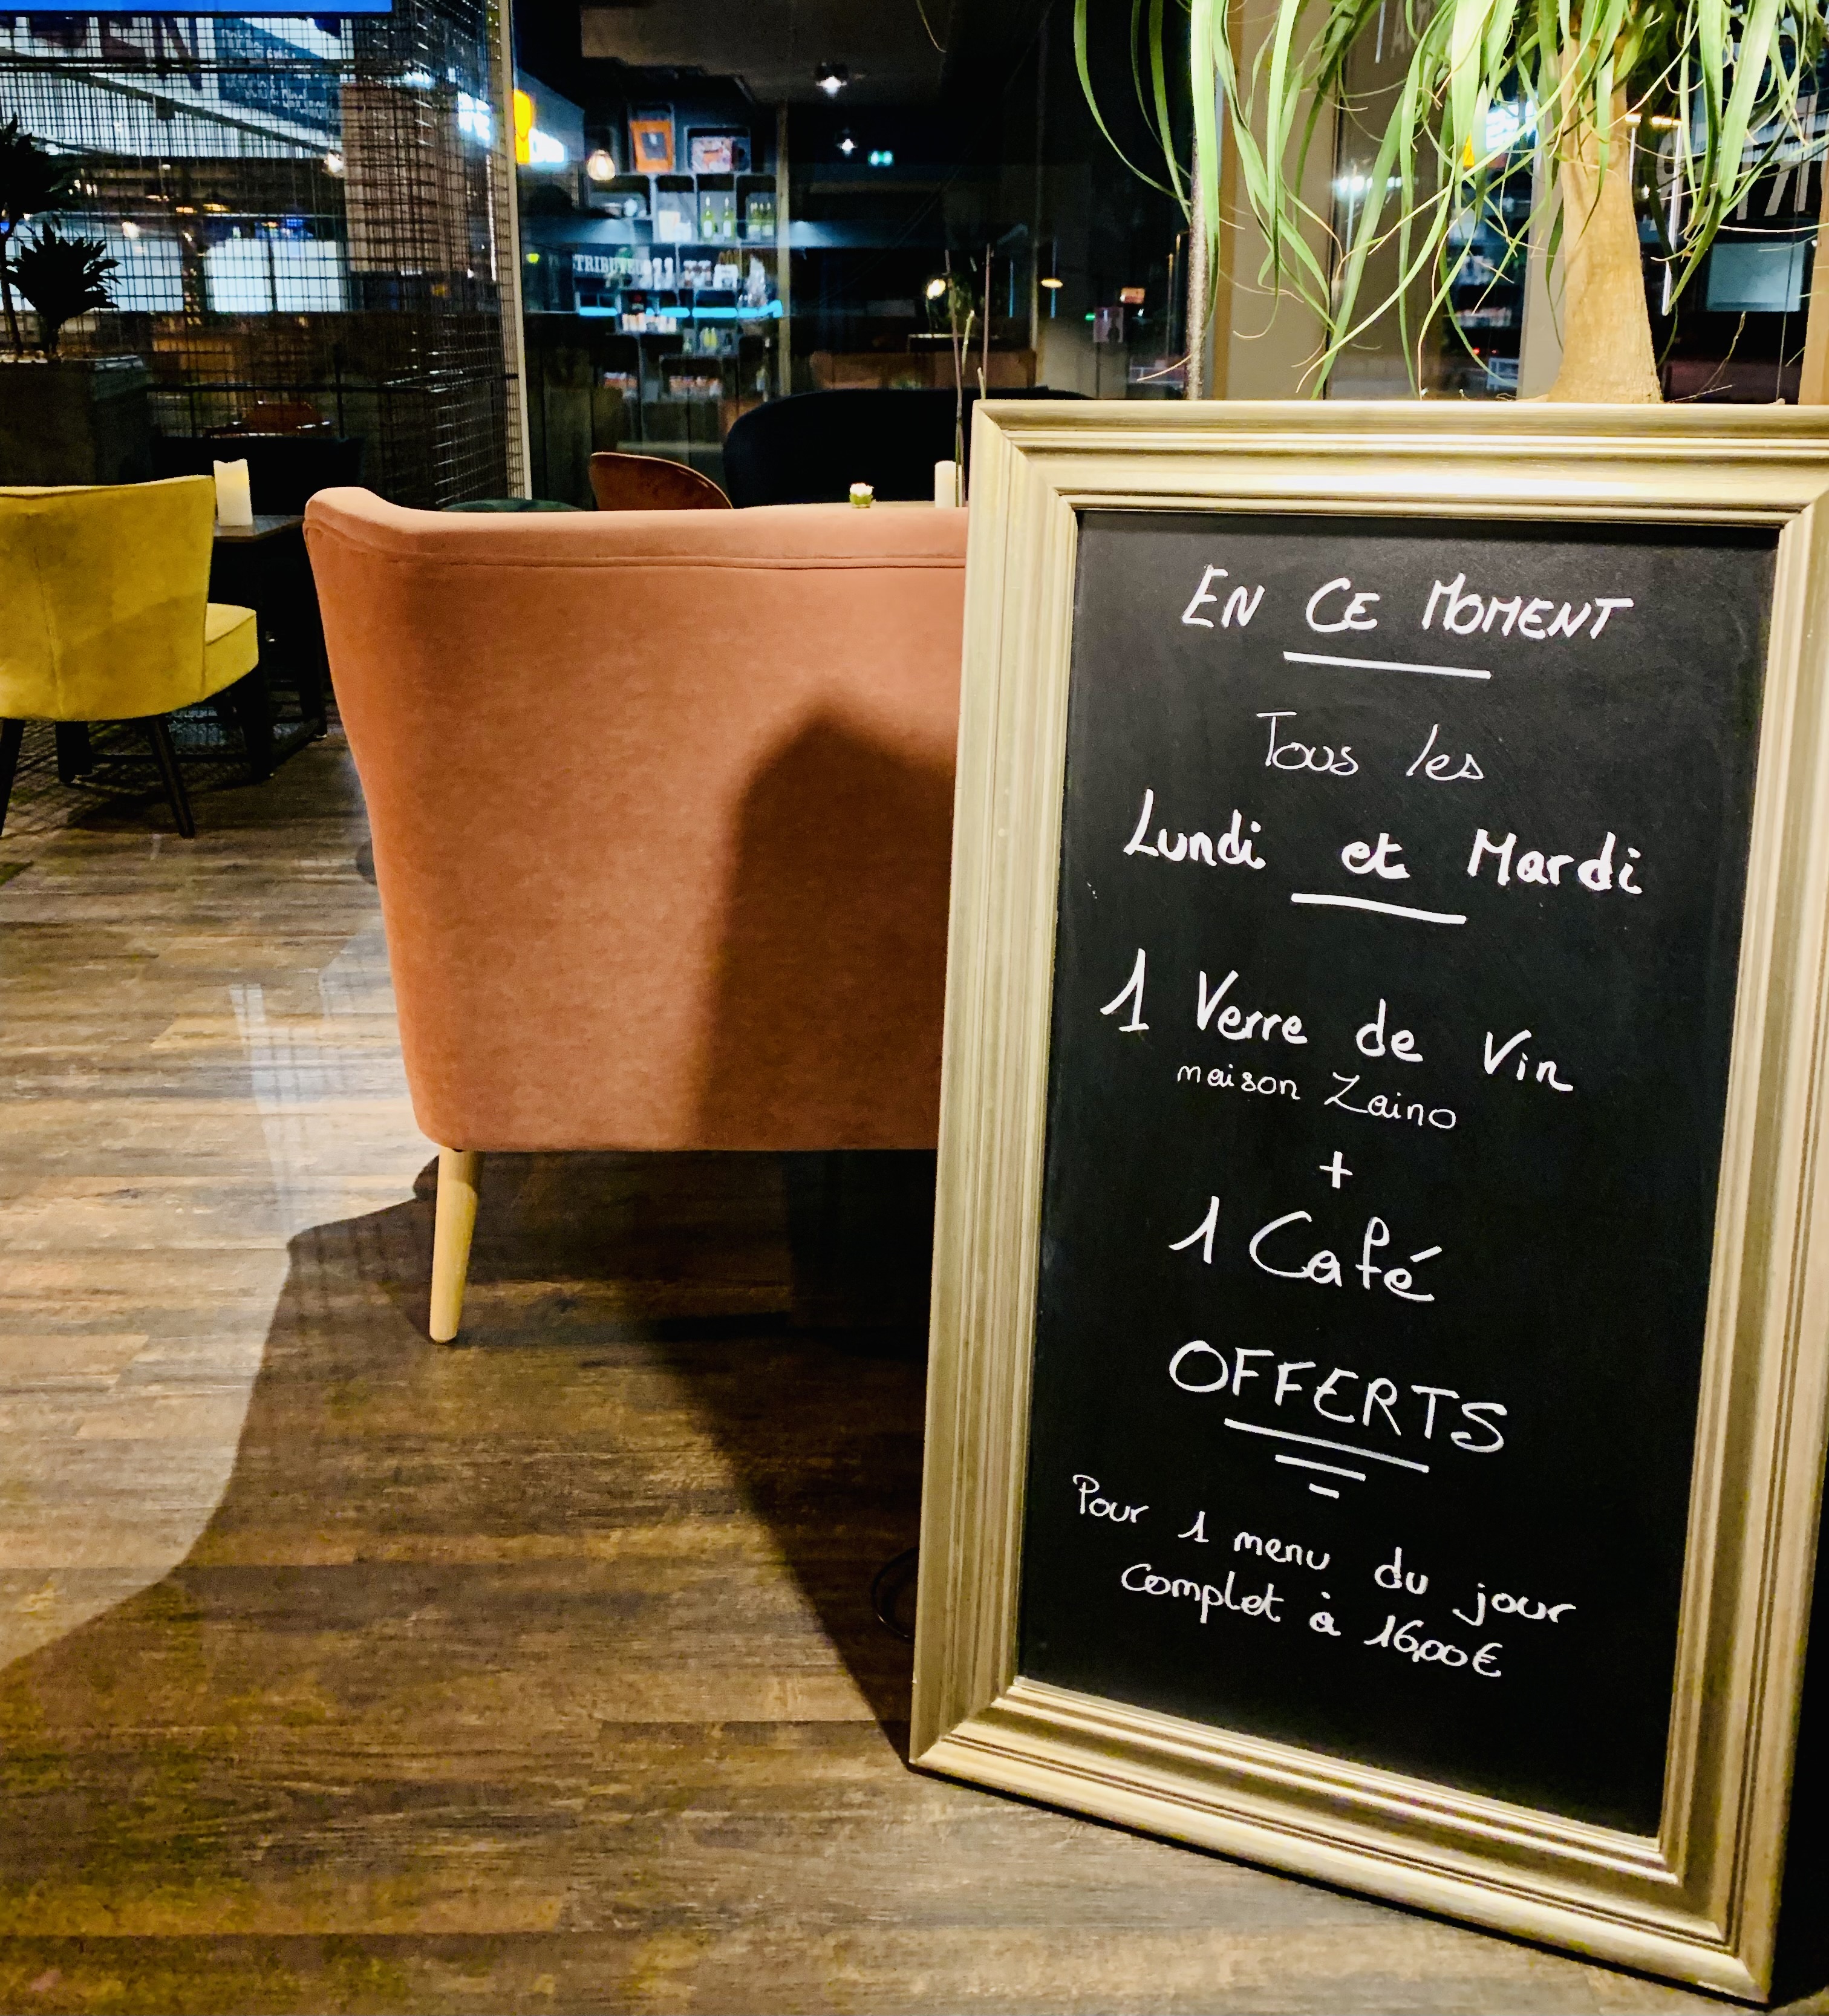 EN CE MOMENT
Tous les
Lundi et Mardi
1 Verre de Vin
maison Zaino
+
1 Café
OFFERTS
Pour 1 menu du jour
complet à 16,00€